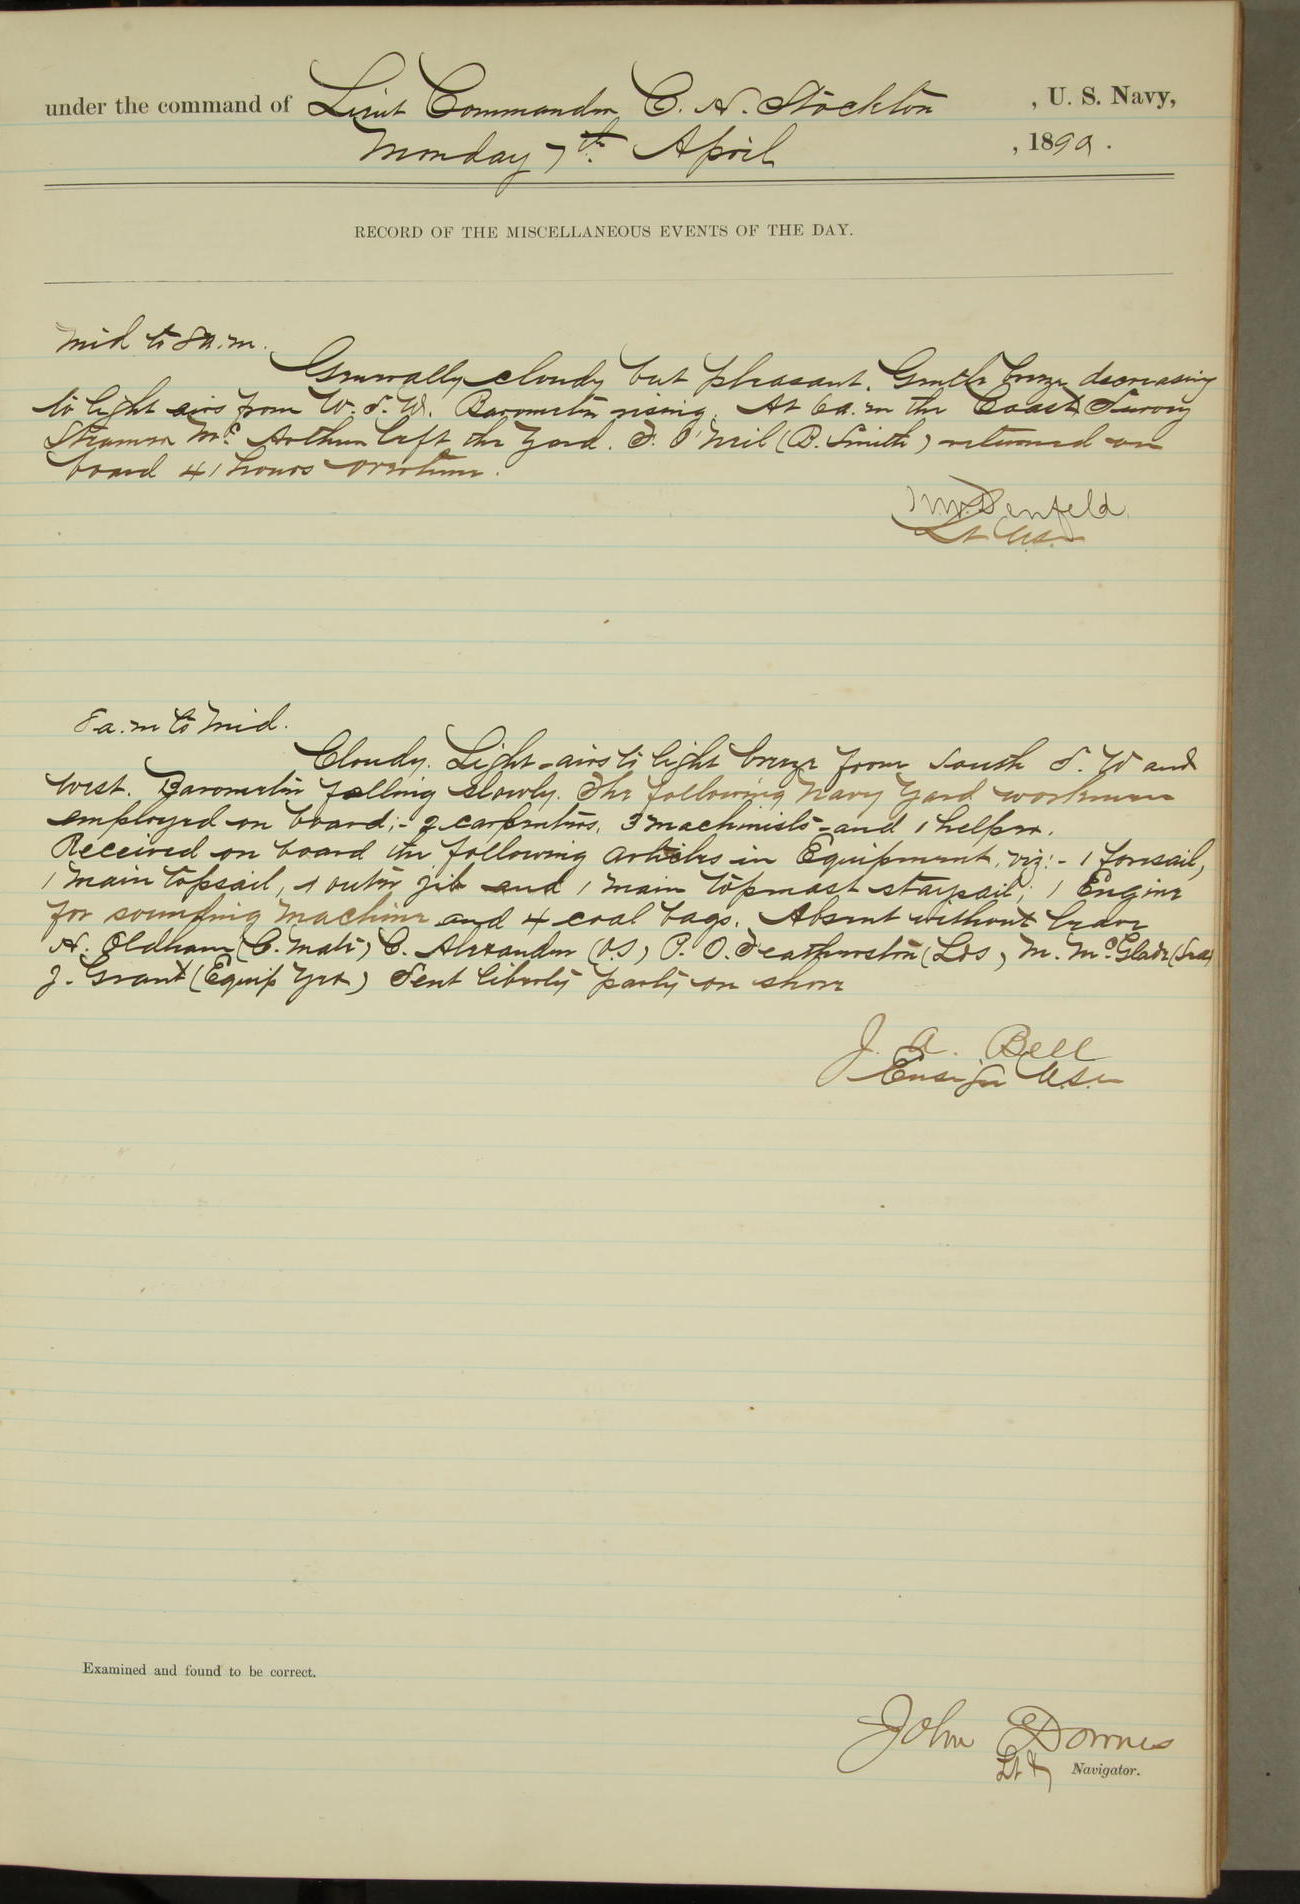 under the command of Lieut Commander C. H. Stockton , U. S. Navy,
Monday 7th April , 1890.
RECORD OF THE MISCELLANEOUS EVENTS OF THE DAY.
Mid to 8 a.m.
Generally cloudy but pleasant. Gentle breeze decreasing
to light airs from W.S.W. Barometer rising. At 6 a.m the Coast Survey
Steamer McArthur left the Yard. F. O'Neil (B. Smith) returned on
board 41 hours overtime.
Denfeld
Lt USN
8 a.m to Mid.
Cloudy. Light airs to light breeze from South S.W and
West. Barometer falling slowly. The following Navy Yard workmen
employed on board:- 2 carpenters, 3 machinists and 1 helper.
Received on board the following articles in Equipment, viz:- 1 foresail,
1 main topsail, 1 outer jib and 1 main topmast staysail; 1 Engine
for sounding machine and 4 coal bags. Absent without leave
H. Oldham (C. Mate) C. Alexander (O.S) P. O. Featherston (Lds) M. McGlade (Sea)
J. Grant (Equip Yeo) Sent liberty party on shore
J. A. Bell
Ensign USN
Examined and found to be correct.
John Downes
Lt & Navigator.